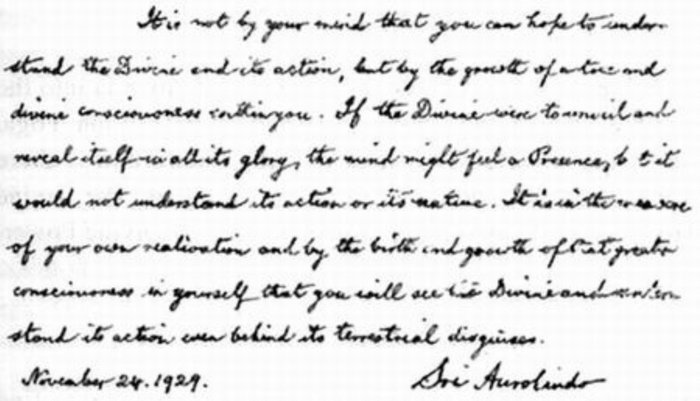 It is not by your mind that you can hope to under-
stand the Divine and its action, but by the growth of a true and
divine consciousness within you. If the Divine were to unveil and
reveal itself in all its glory, the mind might feel a Presence, but it
would not understand its action or its nature. It is in the measure
of your own realisation and by the birth and growth of that greater
consciousness in yourself that you will see the Divine and under-
stand its action even behind its terrestrial disguises.
November 24. 1929. Sri Aurobindo